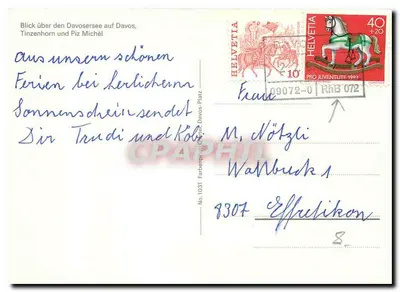 Blick über den Davosersee auf Davos,
Tinzenhorn und Piz Michèl
aus unsern schönen
Ferien bei herlichem
Sonnenschein sendet
Dir Trudi und Köbi
HELVETIA
10
HELVETIA
40
+20
PRO JUVENTUTE 1983
09072-0 RhB 072
Frau
M. Nötzli
8307 Effretikon